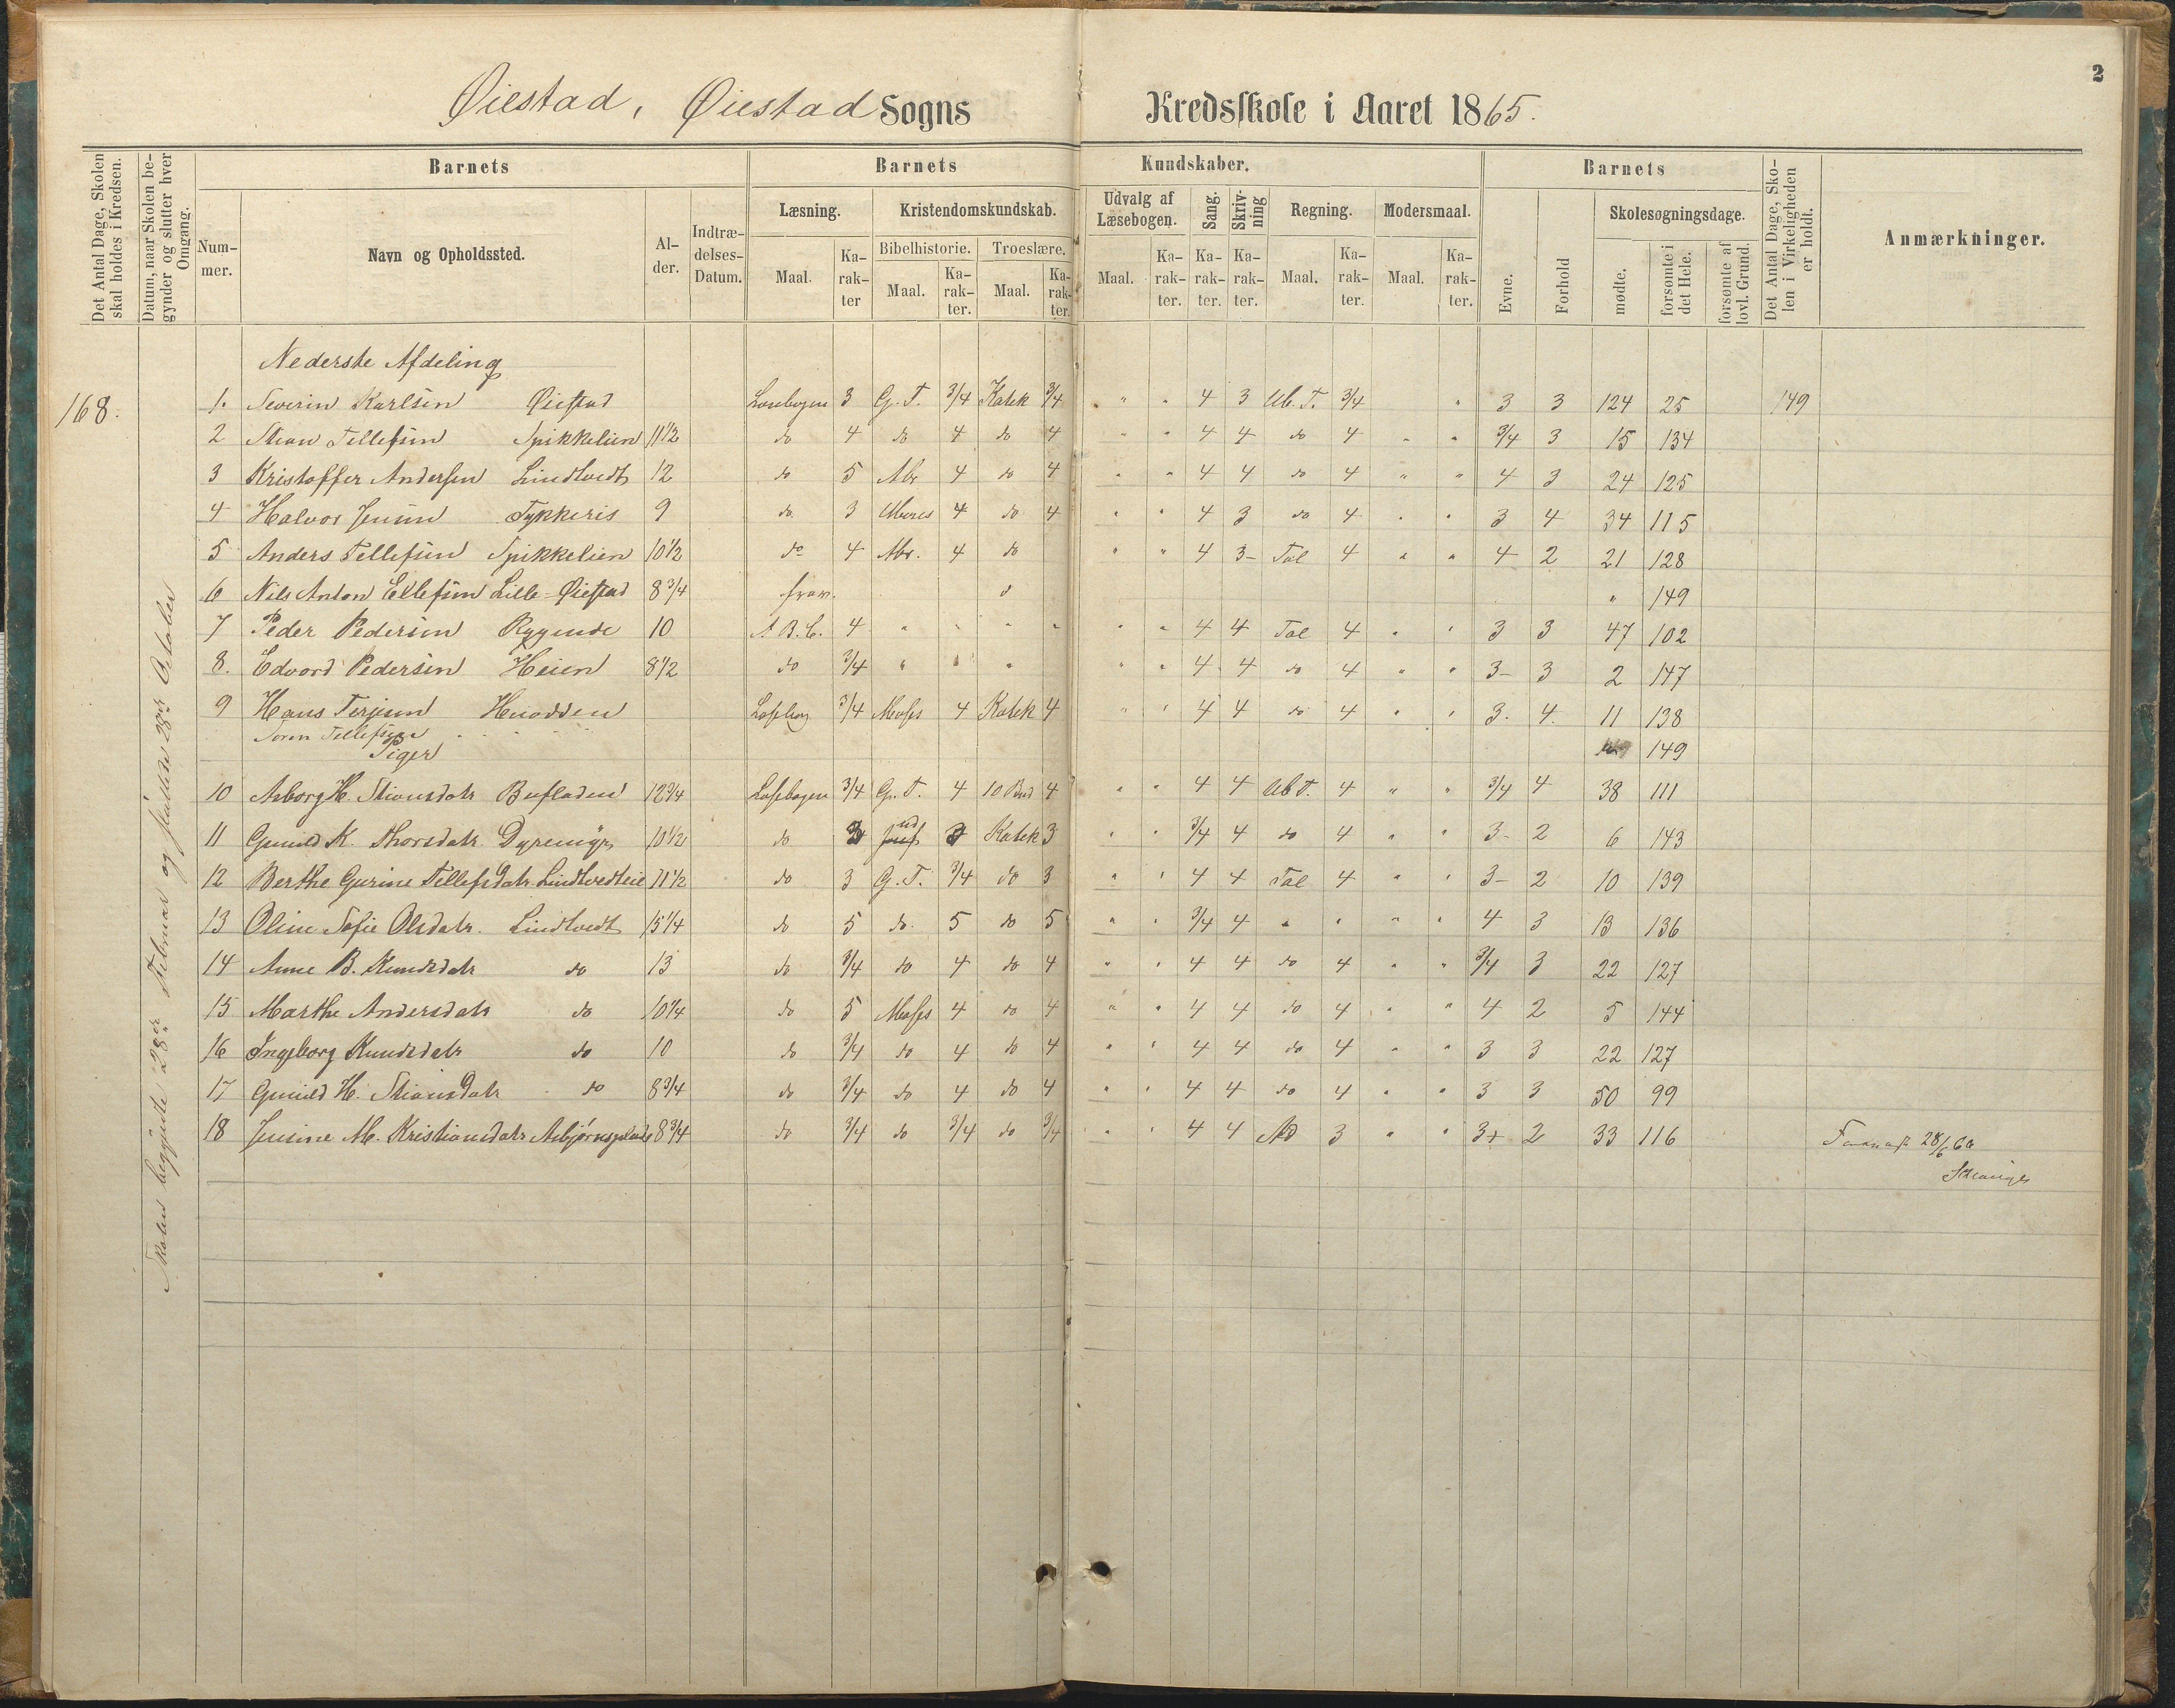 2
Øiestad, Øiestad Sogns Kredsskole i Aaret 1865.
Det Antal Dage, Skolen skal holdes i Kredsen.
Datum, naar Skolen begynder og slutter hver Omgang.
Barnets
Barnets Kundskaber.
Barnets
Det Antal Dage, Skolen i Virkeligheden er holdt.
Anmærkninger.
Nummer.
Navn og Opholdssted.
Alder.
Indtrædelses-Datum.
Læsning.
Kristendomskundskab.
Udvalg af Læsebogen.
Sang.
Skrivning
Regning.
Modersmaal.
Evne.
Forhold
Skolesøgningsdage.
Bibelhistorie.
Troeslære.
Maal. Karakter Maal. Karakter. Maal. Karakter. Maal. Karakter. Karakter. Karakter. Maal. Karakter. Maal. Karakter.
mødte.
forsømte i det Hele.
forsømte af lovl. Grund.
Skolen begyndte 28de Februar og sluttede 28de Oktober
Nederste Afdeling
168. 1. Severin Karlsen Øiestad Læsebogen 3 G. T. 3/4 Katek 3/4 " " 4 3 Ub. T. 3/4 " 3 3 124 25 149
2 Stian Tellefsen Spikkelien 11 1/2 do 4 do 4 do 4 " " 4 4 do 4 " " 3/4 3 15 134
3 Kristoffer Andersen Lindtvedt 12 do 5 Abr 4 do 4 " " 4 4 do 4 " " 4 3 24 125
4 Halvor Jensen Tykkeris 9 do. 3 4 do 4 " " 4 3 do 4 " " 3 4 34 115
5 Anders Tellefsen Spikkelien 10 1/2 do 4 Abr. 4 do " " 4 3- Tal 4 " " 4 2 21 128
6 Nils Anton Ellefsen Lille-Øiestad 8 3/4 frav. " 149
7 Peder Pedersen Rygende 10 A B. C. 4 " " " " " " 4 4 Tal 4 " " 3 3 47 102
8. Edvard Pedersen Heien 8 1/2 do 3/4 " " " " " 4 4 do 4 " " 3- 3 2 147
9 Hans Terjesen Hnodden Læsebog 3/4 Moses 4 Katek 4 " " 4 4 do 4 " " 3. 4. 11 138
Søren Tellefsen 149
Piger
10 Asborg H. Stiansdatr Bufladen 12 3/4 Læsebogen 3/4 G. T. 4 10 Bud 4 " " 4 4 Ub T. 4 " " 3/4 4 38 111
11 Gunild K. Thorsdatr. Dyremyr 10 1/2 do 3 Katek 3 " " 3/4 4 do 4 " " 3- 2 6 143
12 Berthe Gurine Tellefsdatr. Lindtvedteie 11 1/2 do 3 G. T. 3/4 do 3 " " 4 4 Tal 4 " " 3- 2 10 139
13 Oline Sofie Olsdatr. Lindtvedt 15 1/4 do 5 do. 5 do 5 " " 3/4 4 " " " " 4 3 13 136
14 Anne B. Knudsdatr do 13 do 3/4 do 4 do 4 " " 4 4 do 4 " " 3/4 3 22 127
15 Marthe Andersdatr do 10 1/4 do 5 Moses 4 do 4 " " 4 4 do 4 " " 4 2 5 144
16 Ingeborg Knudsdatr do 10 do 3/4 do 4 do 4 " " 4 4 do 4 " " 3 3 22 127
17 Gunild H. Stiansdatr do 8 3/4 do 3/4 do 4 do 4 " " 4 4 do 4 " " 3 3 50 99
18 Jensine M. Kristiansdatr Asbjørnsplads 8 3/4 do 3/4 do 3/4 do 3/4 " " 4 4 Ad 3 " " 3+ 2 33 116 28/6 66